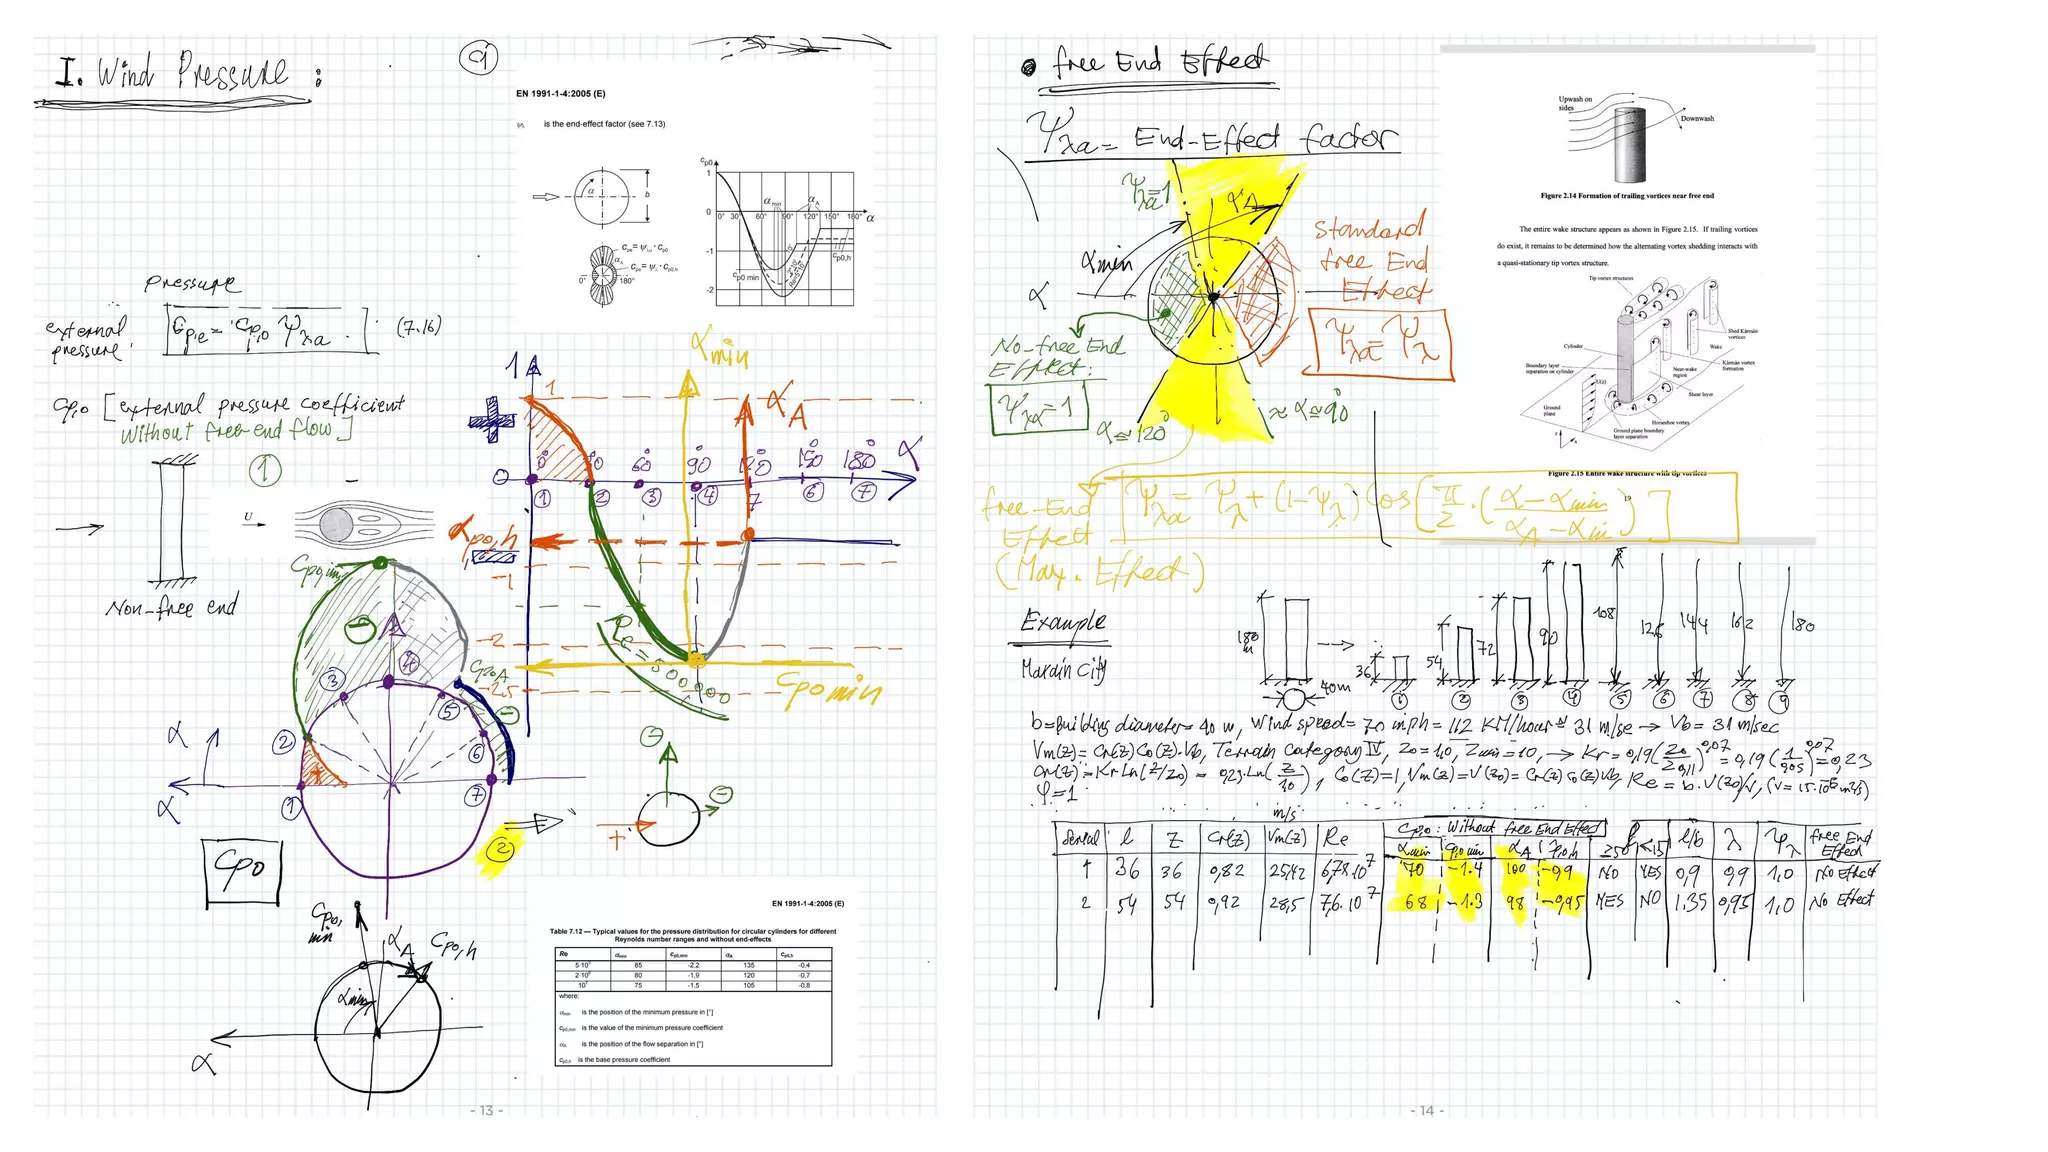 I. Wind Pressure :
EN 1991-1-4:2005 (E)
ψλ is the end-effect factor (see 7.13)
α
b
cp0
1
0
-1
-2
0° 30° 60° 90° 120° 150° 180° α
αmin
αA
cp0 min
cp0,h
cpe = ψλα · cp0
cpe = ψλ · cp0,h
αA
0° 180°
Pressure
external
pressure
Cp,e = Cp,o ψλα (7.16)
Cp,o [external pressure coefficient
without free end flow]
1
U
Non-free end
αmin
αA
1
0
60 90 150 180 α
1 2 3 4 7 6 7
αpo,h
-1
-2
-2.5
Re = 500,000
Cpo min
CpoA
α
1 2 3 4 5 6 7
α
Cpo
2
+
Cpo, min
αA
Cpo,h
αmin
α
EN 1991-1-4:2005 (E)
Table 7.12 — Typical values for the pressure distribution for circular cylinders for different
Reynolds number ranges and without end-effects
Re αmin cp0,min αA cp0,h
5·10⁵ 85 -2,2 135 -0,4
2·10⁶ 80 -1,9 120 -0,7
10⁷ 75 -1,5 105 -0,8
where:
αmin is the position of the minimum pressure in [°]
cp0,min is the value of the minimum pressure coefficient
αA is the position of the flow separation in [°]
cp0,h is the base pressure coefficient
- 13 -
• free End Effect
ψλα = End-Effect factor
ψλα=1
αA
αmin
α
Standard
free End
Effect
ψλα = ψλ
No-free End
Effect:
ψλα=1
α≃120°
≈ α≃90°
free-End
Effect
(Max. Effect)
ψλα = ψλ + (1-ψλ) Cos[π/2 · (α-αmin / αA-αmin)]
Upwash on
sides
Downwash
Figure 2.14 Formation of trailing vortices near free end
The entire wake structure appears as shown in Figure 2.15. If trailing vortices
do exist, it remains to be determined how the alternating vortex shedding interacts with
a quasi-stationary tip vortex structure.
Tip vortex structures
Shed Kármán
vortices
Cylinder
Wake
Boundary layer
separation on cylinder
U(z)
Kármán vortex
formation
Near-wake
region
Shear layer
Ground
plane
Horseshoe vortex
Ground plane boundary
layer separation
Figure 2.15 Entire wake structure with tip vortices
19
Example
Mardin City
180 m
40m
36 54 72 90 108 126 144 162 180
1 2 3 4 5 6 7 8 9
b=building diameter= 40 m, wind speed= 70 mph= 112 KM/hour≅ 31 m/se → Vb= 31 m/sec
Vm(z)= Cr(z) Co(z)·Vb, Terrain Category IV, Zo=1,0, Zmin=10, → Kr=0,19(Zo/Zo,II)^0,07 = 0,19(1/0,05)^0,07=0,23
Cr(z)= Kr Ln(z/zo) = 0,23·Ln(z/1,0), Co(z)=1, Vm(z)=V(zo)= Cr(z) Co(z)Vb, Re = b·V(zo)/ν, (ν= 15·10⁻⁶ m²/s)
φ=1
m/s
Serial l Z Cr(z) Vm(z) Re Cp,o: Without free End Effect l l/b λ ψλ free End Effect
αmin Cpo min αA Cpo,h ≥50 <15
1 36 36 0,82 25,42 6,78·10⁷ 70 -1.4 100 -0,9 NO YES 0,9 0,9 1,0 No Effect
2 54 54 0,92 28,5 7,6·10⁷ 68 -1.3 98 -0,95 YES NO 1.35 0,95 1,0 No Effect
- 14 -